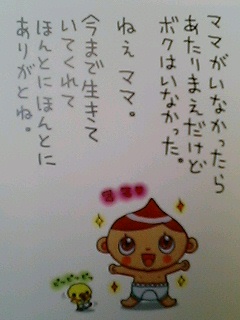 ママがいなかったら
あたりまえだけど
ボクはいなかった。
ねぇママ。
今まで生きて
いてくれて
ほんとにほんとに
ありがとね。